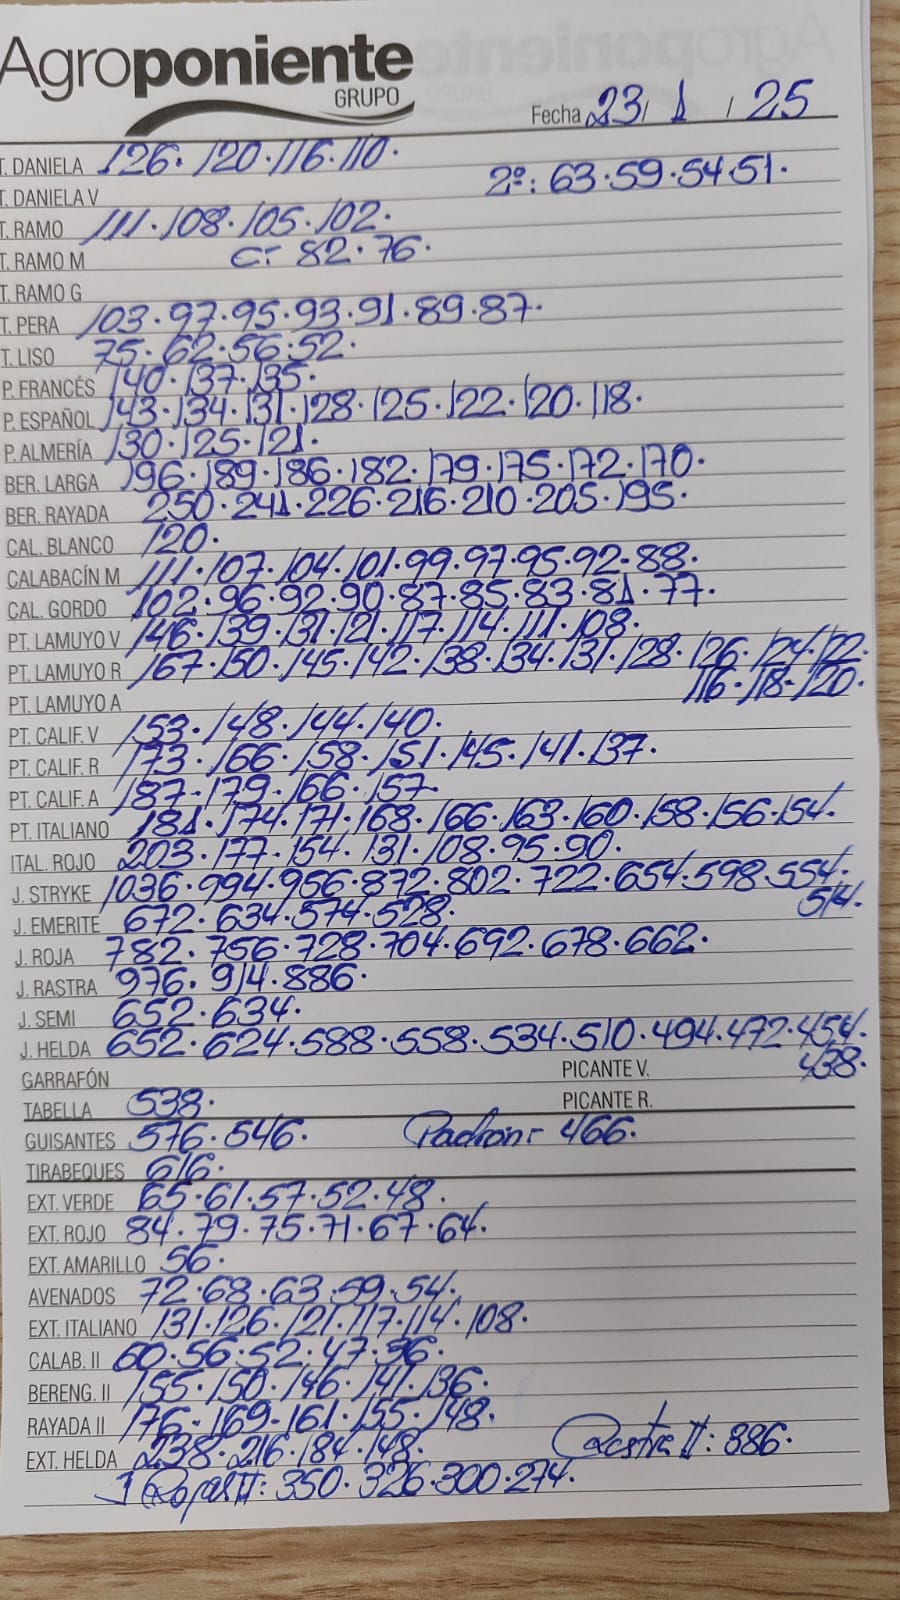 Agroponiente
GRUPO
Fecha 23 / 1 / 25
T. DANIELA 126. 120. 116. 110.
T. DANIELA V 2ª: 63. 59. 54. 51.
T. RAMO 111. 108. 105. 102.
T. RAMO M C: 82. 76.
T. RAMO G
T. PERA 103. 97. 95. 93. 91. 89. 87.
T. LISO 75. 62. 56. 52.
P. FRANCÉS 140. 137. 135.
P. ESPAÑOL 143. 134. 131. 128. 125. 122. 120. 118.
P. ALMERÍA 130. 125. 121.
BER. LARGA 196. 189. 186. 182. 179. 175. 172. 170.
BER. RAYADA 250. 241. 226. 216. 210. 205. 195.
CAL. BLANCO 120.
CALABACÍN M 111. 107. 104. 101. 99. 97. 95. 92. 88.
CAL. GORDO 102. 96. 92. 90. 87. 85. 83. 81. 77.
PT. LAMUYO V 146. 139. 131. 121. 117. 114. 111. 108.
PT. LAMUYO R 167. 150. 145. 142. 138. 134. 131. 128. 126. 124. 122.
116. 118. 120.
PT. LAMUYO A
PT. CALIF. V 153. 148. 144. 140.
PT. CALIF. R 173. 166. 158. 151. 145. 141. 137.
PT. CALIF. A 187. 179. 166. 157.
PT. ITALIANO 181. 174. 171. 168. 166. 163. 160. 158. 156. 154.
ITAL. ROJO 203. 177. 154. 131. 108. 95. 90.
J. STRYKE 1036. 994. 956. 872. 802. 722. 654. 598. 554.
514.
J. EMERITE 672. 634. 574. 528.
J. ROJA 782. 756. 728. 704. 692. 678. 662.
J. RASTRA 976. 914. 886.
J. SEMI 652. 634.
J. HELDA 652. 624. 588. 558. 534. 510. 494. 472. 454.
438.
GARRAFÓN PICANTE V.
TABELLA 538. PICANTE R.
GUISANTES 576. 546. Padron: 466.
TIRABEQUES 616.
EXT. VERDE 65. 61. 57. 52. 48.
EXT. ROJO 84. 79. 75. 71. 67. 64.
EXT. AMARILLO 56.
AVENADOS 72. 68. 63. 59. 54.
EXT. ITALIANO 131. 126. 121. 117. 114. 108.
CALAB. II 60. 56. 52. 47. 36.
BERENG. II 155. 150. 146. 141. 136.
RAYADA II 176. 169. 161. 155. 148.
EXT. HELDA 238. 216. 184. 148. Rastra II: 386.
J Roja II: 350. 326. 300. 274.